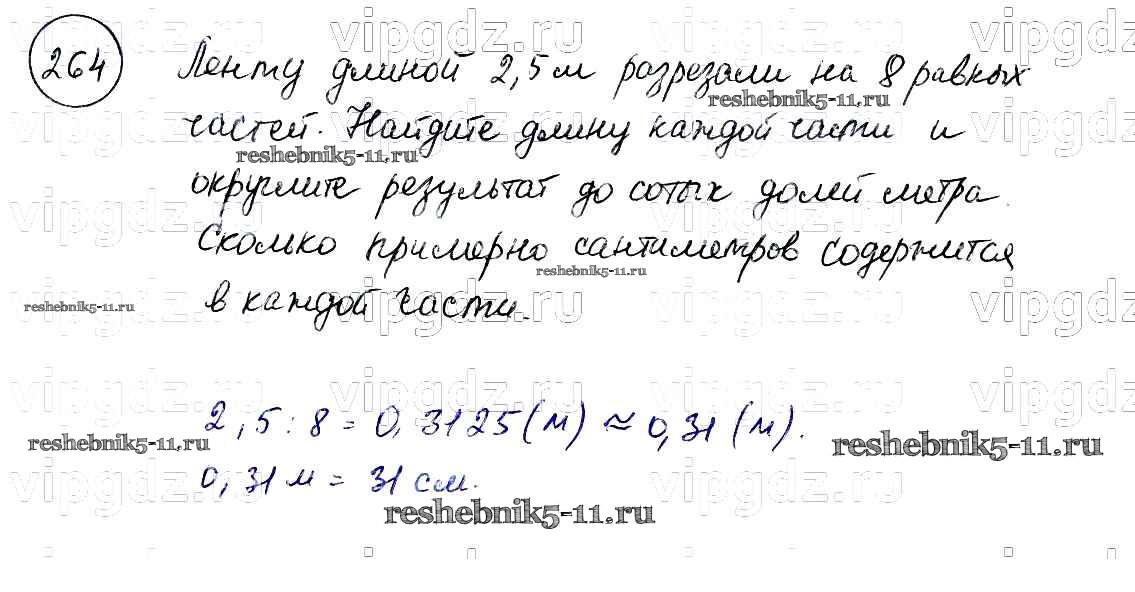 264
Ленту длиной 2,5 м разрезали на 8 равных
частей. Найдите длину каждой части и
округлите результат до сотых долей метра.
Сколько примерно сантиметров содержится
в каждой части.
2,5 : 8 = 0,3125 (м) ≈ 0,31 (м).
0,31 м = 31 см.
vipgdz.ru
reshebnik5-11.ru